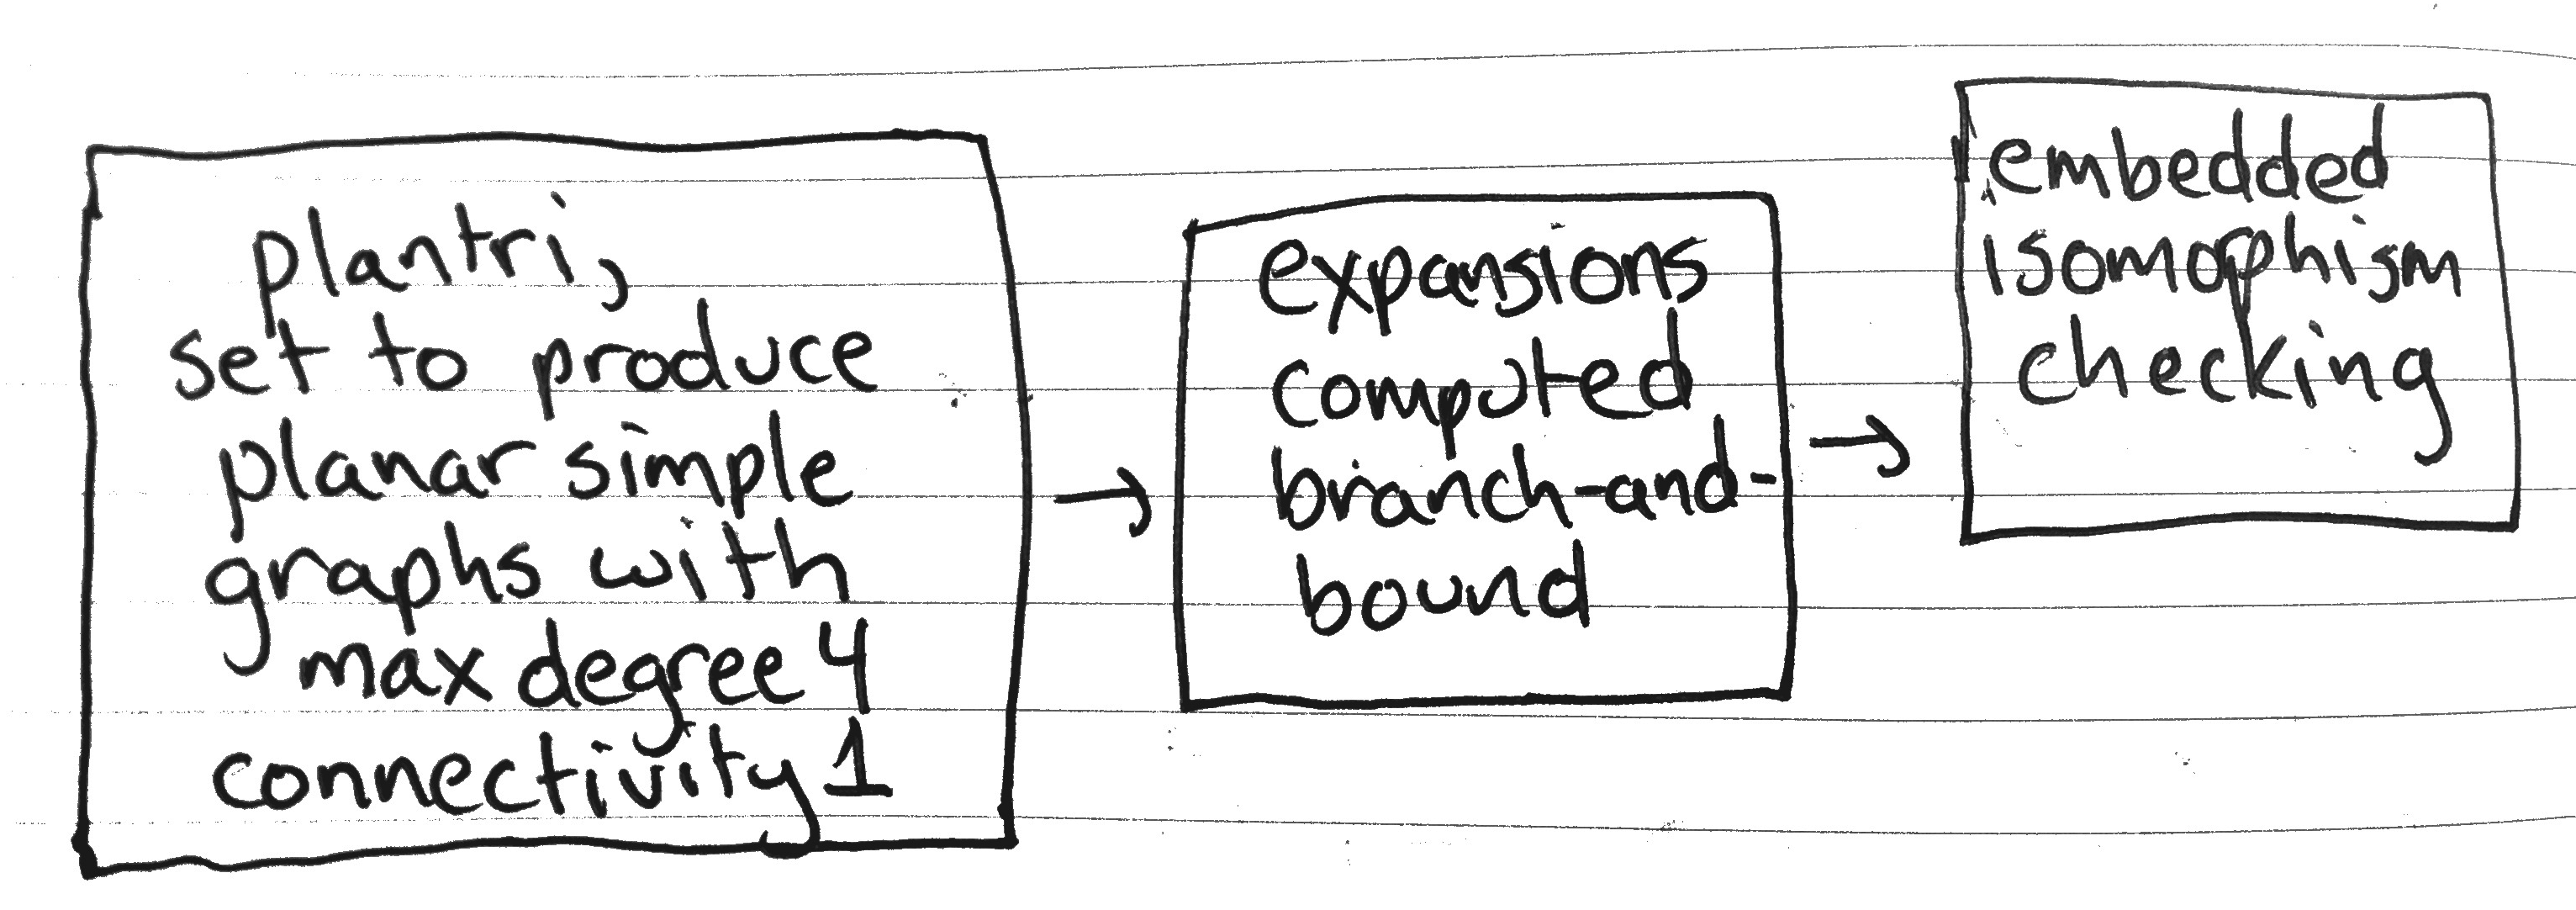 plantri,
set to produce
planar simple
graphs with
max degree 4
connectivity 1
→
expansions
computed
branch-and-
bound
→
embedded
isomorphism
checking